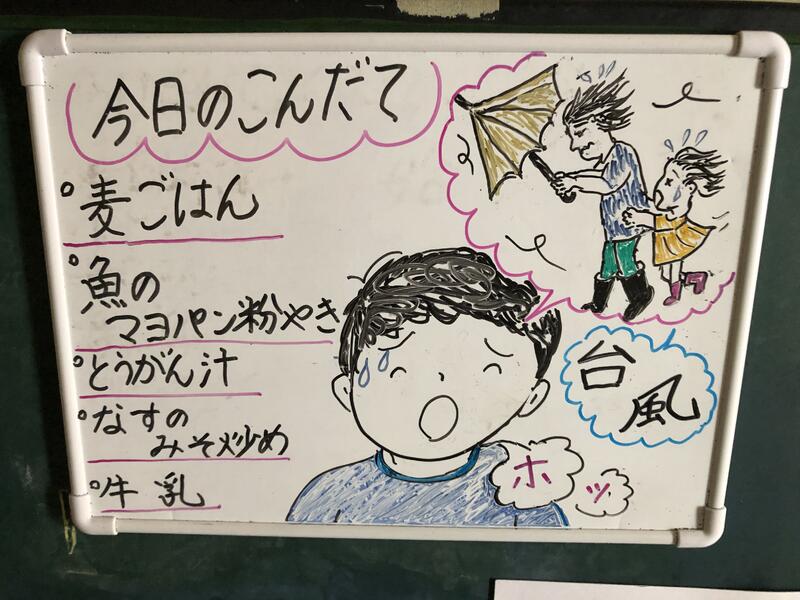 今日のこんだて
麦ごはん
魚の
マヨパン粉やき
とうがん汁
なすの
みそ炒め
牛乳
台風
ホッ